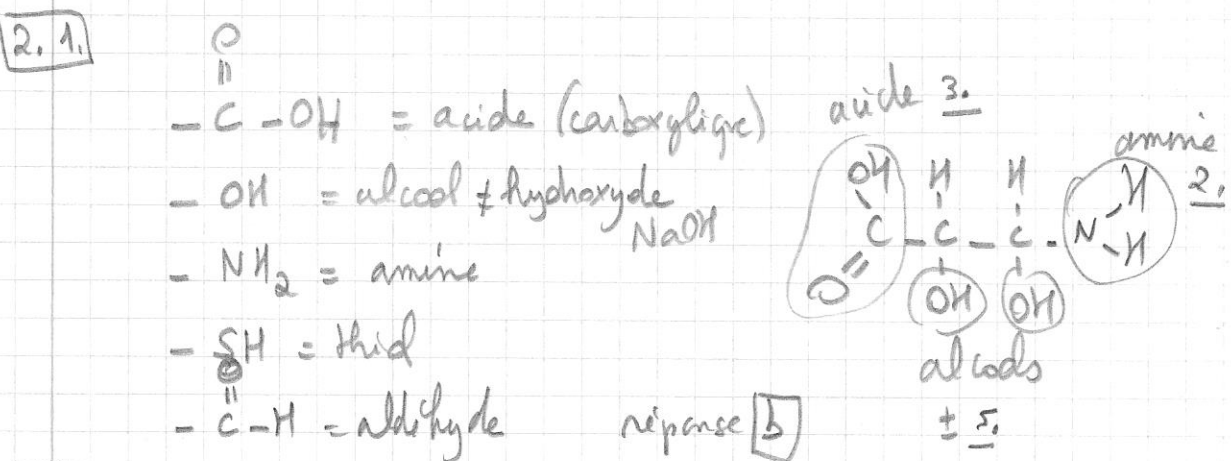 2.1.
O
||
- C - OH = acide (carboxylique)
- OH = alcool ≠ hydroxyde
NaOH
- NH₂ = amine
- SH = thiol
O
||
- C - H = aldéhyde
réponse b
acide 3.
amine
2.
OH H H H
C - C - C - N - H
O OH OH
alcools
± 5.